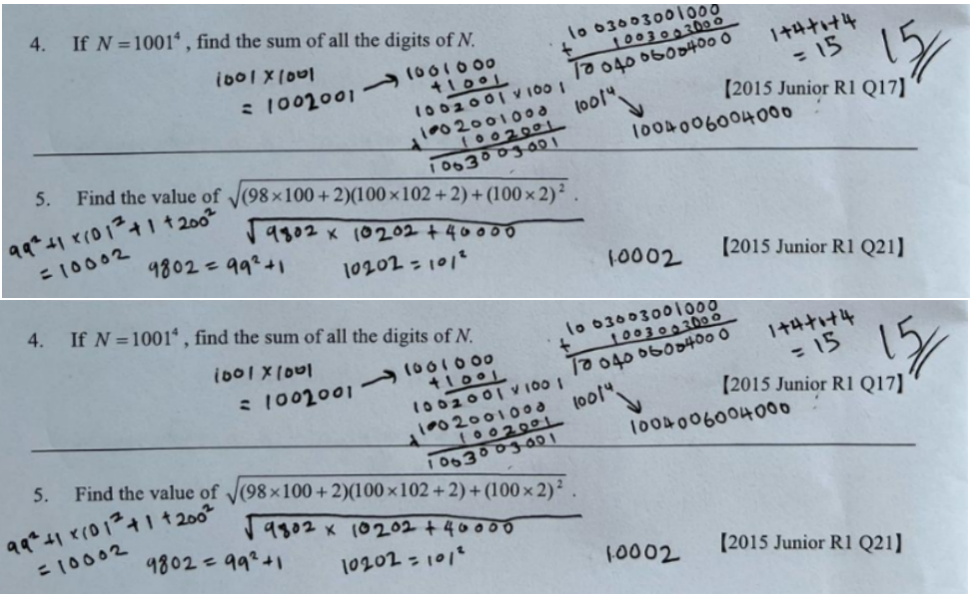 4. If N = 1001⁴, find the sum of all the digits of N.
1001 × 1001
= 1002001
1001000
+1001
1002001 × 1001
1002001000
+ 1002001
1003003001
1003003001000
+ 1003003000
1004006004000
1001⁴
1004006004000
1+4+6+4
= 15
15
【2015 Junior R1 Q17】
5. Find the value of √(98×100+2)(100×102+2)+(100×2)² .
99²+1×101²+1+200²
= 10002
√9802 × 10202 + 40000
9802 = 99²+1
10202 = 101²
10002
【2015 Junior R1 Q21】
4. If N = 1001⁴, find the sum of all the digits of N.
1001 × 1001
= 1002001
1001000
+1001
1002001 × 1001
1002001000
+ 1002001
1003003001
1003003001000
+ 1003003000
1004006004000
1001⁴
1004006004000
1+4+6+4
= 15
15
【2015 Junior R1 Q17】
5. Find the value of √(98×100+2)(100×102+2)+(100×2)² .
99²+1×101²+1+200²
= 10002
√9802 × 10202 + 40000
9802 = 99²+1
10202 = 101²
10002
【2015 Junior R1 Q21】